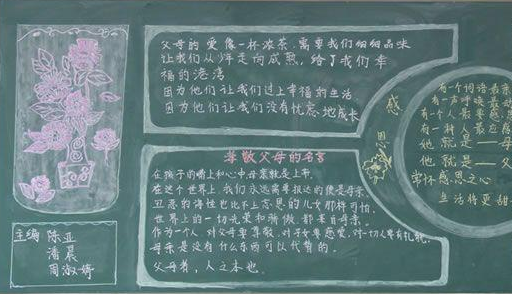 父母的爱像一杯浓茶,需要我们细细品味
让我们从少年走向成熟,给了我们幸
福的港湾
因为他们让我们过上幸福的生活
因为他们让我们没有忧虑地成长
感
恩
有一个词语最亲
有一声呼唤最动
有一个人最要感
有一种人最应感
她就是——母
他就是——父
常怀感恩之心
生活将更甜
尊敬父母的名言
在孩子的嘴上和心中母亲就是上帝.
在这个世界上,我们永远需要报答的便是母亲.
丑恶的海怪也比不上忘恩的儿女那样可怕.
世界上的一切光荣和骄傲,都来自母亲.
作为一个人,对父母要尊敬,对子女要慈爱,对一切人要有礼貌.
母亲是没有什么东西可以代替的.
父母者,人之本也.
主编 陈亚
潘晨
周淑婧